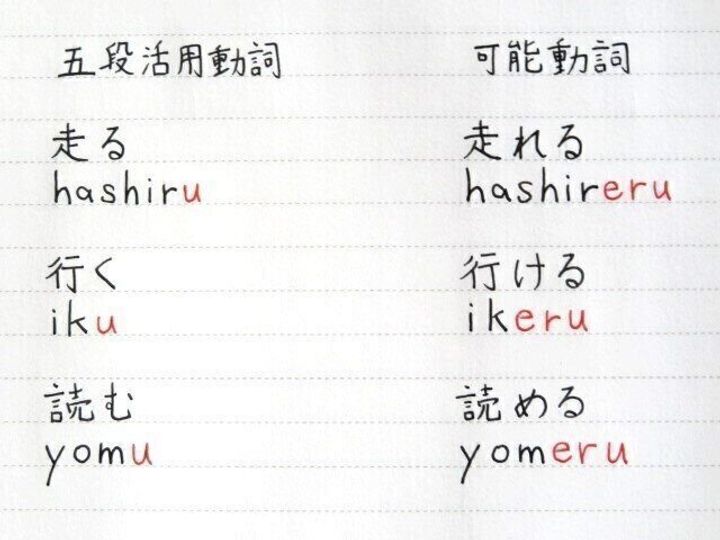 五段活用動詞 可能動詞
走る 走れる
hashiru hashireru
行く 行ける
iku ikeru
読む 読める
yomu yomeru